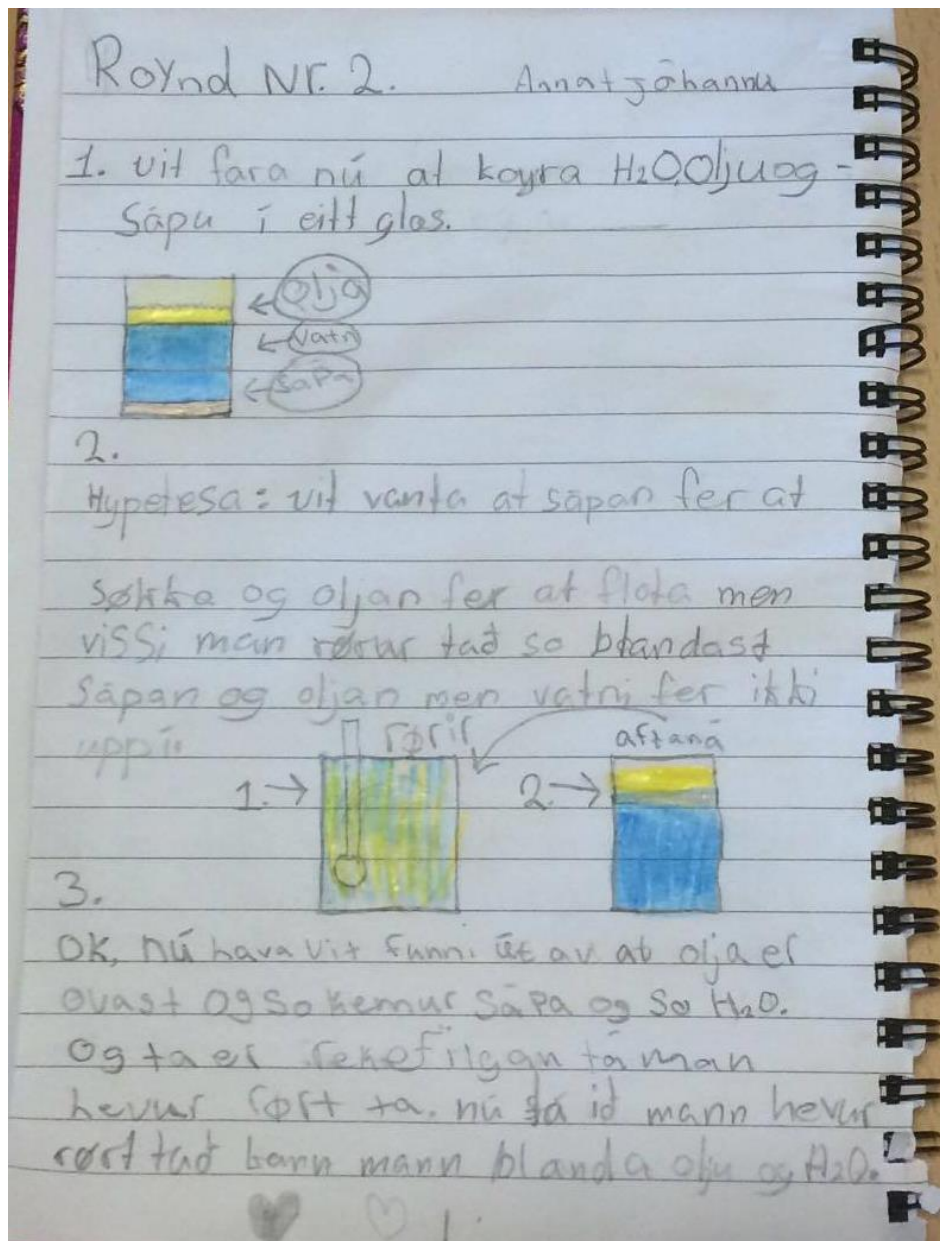 Roynd Nr. 2. Annat jóhanna
1. vit fara nú at koyra H₂O, Olju og -
Sápu í eitt glas.
Olja
Vatn
Sápa
2.
Hypetesa: vit vanta at sápan fer at
søkka og oljan fer at flota men
vissi man rørur tað so blandast
Sápan og oljan men vatni fer ikki
uppí.
rørir
aftaná
1.→
2.→
3.
OK, nú hava vit funni út av at olja er
ovast og so kemur Sápa og so H₂O.
Og ta er tá man
hevur rørt ta. nú tá id mann hevur
rørt tad kann mann blanda olju og H₂O.